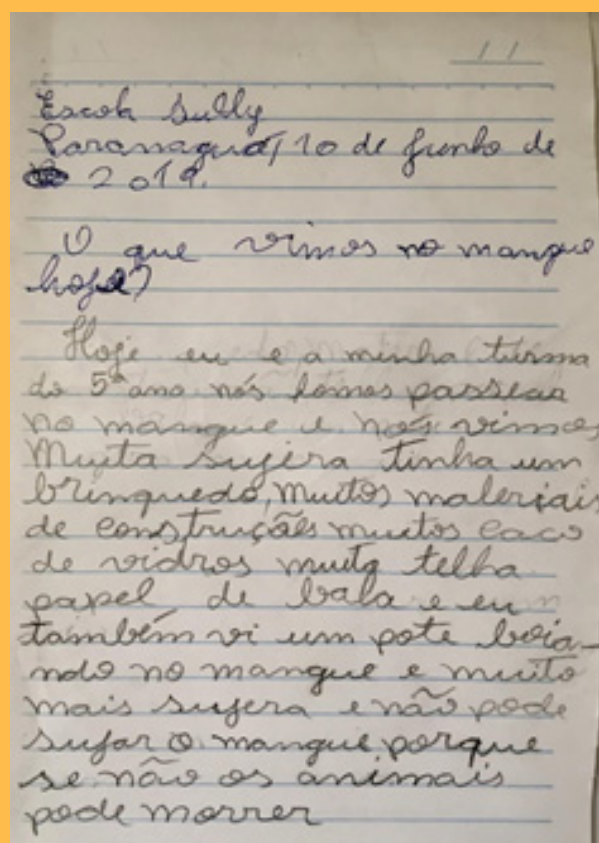 / /
Escola Sully
Paranaguá, 10 de junho de
2019.
O que vimos no mangue
hoje?
Hoje eu e a minha turma
do 5º ano nós fomos passear
no mangue e nós vimos
Muita sujera tinha um
brinquedo, muitos materiais
de construções muitos caco
de vidros muita telha
papel de bala e eu
também vi um pote boia-
ndo no mangue e muito
mais sujera e não pode
sujar o mangue porque
se não os animais
pode morrer